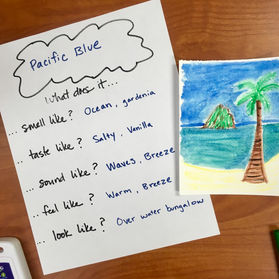 Pacific Blue
What does it...
... smell like? Ocean, gardenia
... taste like? Salty, Vanilla
... sound like? Waves, Breeze
... feel like? Warm, Breeze
... look like? Over water bungalow